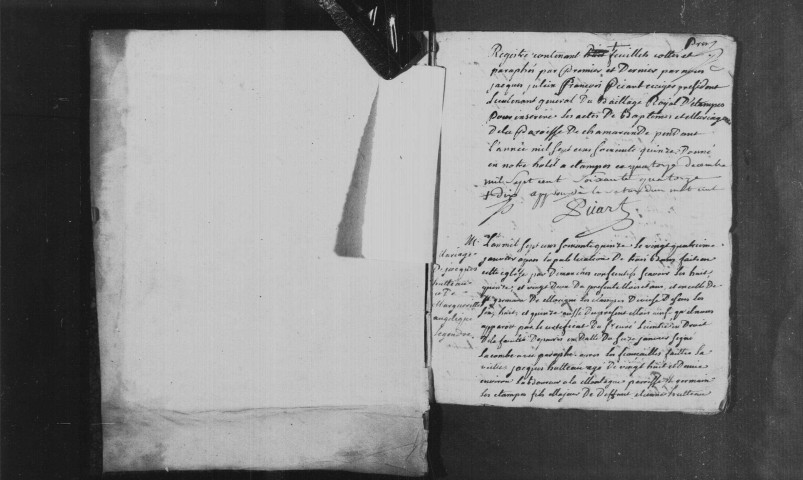 Registre contenant huit feuillets cottés et
paraphés par Premier et Dernier par nous
jacques julien François Picart ecuyer president
Lieutenant general du Bailliage Royal D'etampes
Pour inscrire les actes De Baptemes et Mariages
De la Paroisse De chamarande pendant
l'année mil sept cens soixante quinze Donné
en notre hotel a etampes ce quatorze decembre
mil sept cent soixante quatorze
+ dix approuvé la rature d'un mot
Picart
Mariage
De jacques
hutteau
et De
Marguerite
angelique
legendre
L'an mil sept cens soixante quinze le vingt quatrieme
janvier apres la publication De trois bans faite en
cette eglise par Dimanches consecutifs scavoir les huit
quinze et vingt Deux Du present Mois et an, et en celle de
St germain De les etampes Diocese De sens les
huit, et quinze aussi Du present Mois ainsi qu'il nous
apparoit par le certificat Du sieur Licentié en Droit
De la faculté De paris en Datte Du janvier signé
Lacombe avec paraphe avec les fiancailles faittes la
veille, jacques hutteau agé de vingt huit et Demie
environ laboureur a la Montagne paroisse St germain
les etampes fils Majeur De Deffunt hutteau